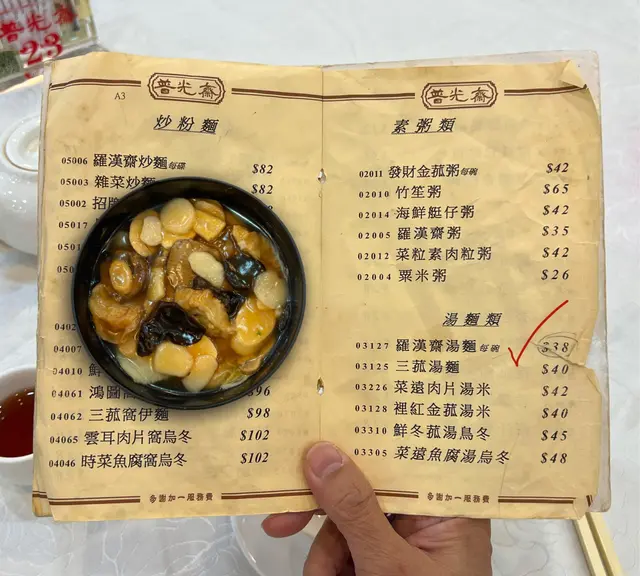 普光齋
23
普光齋
A3
炒粉麵
05006 羅漢齋炒麵 每碟 $82
05003 雜菜炒麵 $82
05002 招牌
05017
0402
04007
04010 鮮
04061 鴻圖窩 $96
04062 三菰窩伊麵 $98
04065 雲耳肉片窩烏冬 $102
04046 時菜魚腐窩烏冬 $102
多謝加一服務費
普光齋
素粥類
02011 發財金菰粥 每碗 $42
02010 竹笙粥 $65
02014 海鮮艇仔粥 $42
02005 羅漢齋粥 $35
02012 菜粒素肉粒粥 $42
02004 粟米粥 $26
湯麵類
03127 羅漢齋湯麵 每碗 $38
03125 三菰湯麵 $40
03226 菜遠肉片湯米 $42
03128 裡紅金菰湯米 $40
03310 鮮冬菰湯烏冬 $45
03305 菜遠魚腐湯烏冬 $48
多謝加一服務費